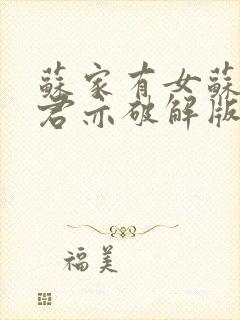 蘇家有女蘇
君亦破解版
福美